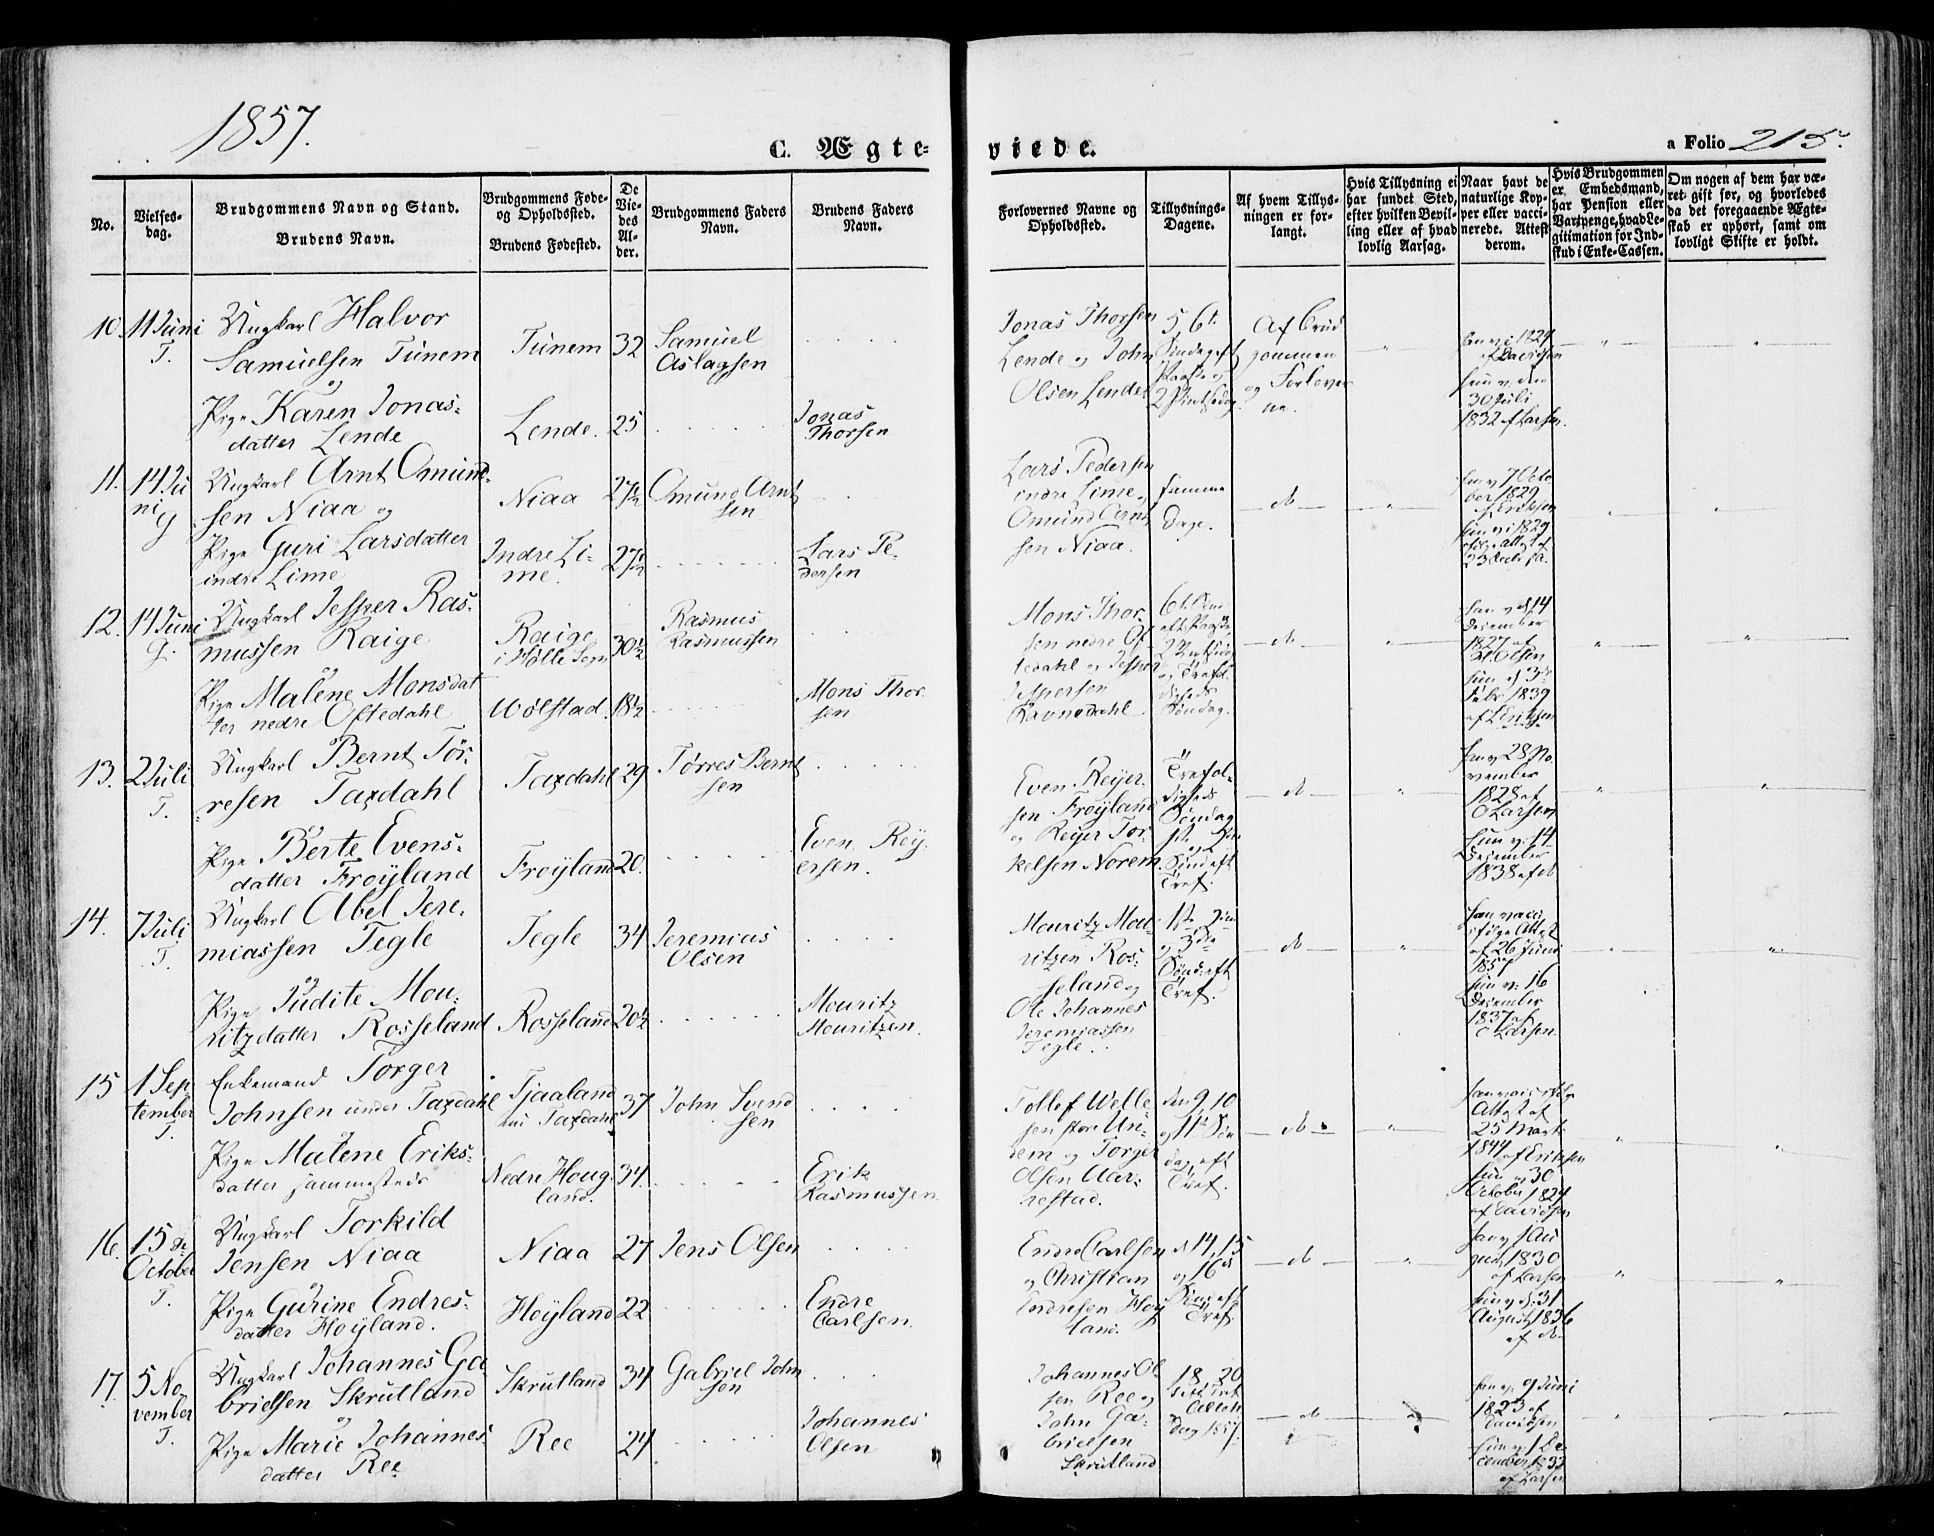 1857.
C. Ægte=
viede.
a Folio 215.
No.
Vielses-
dag.
Brudgommens Navn og Stand.
Brudens Navn.
Brudgommens Føde-
og Opholdssted.
Brudens Fødested.
De
Vie-
des
Al-
der.
Brudgommens Faders
Navn.
Brudens Faders
Navn.
Forlovernes Navne og
Opholdssted.
Tillysnings-
Dagene.
Af hvem Tillys-
ningen er for-
langt.
Hvis Tillysning ei
har fundet Sted,
efter hvilken Bevil-
ling eller af hvad
lovlig Aarsag.
Naar havt de
naturlige Kop-
per eller vacci-
nerede. Attest
derom.
Hvis Brudgommen
er Embedsmand,
har Pension eller
Vartpenge, hvad Le-
gitimation for Ind-
skud i Enke-Cassen.
Om nogen af dem har væ-
ret gift før, og hvorledes
da det foregaaende Ægte-
skab er ophørt, samt om
lovligt Skifte er holdt.
10. 11 Juni
T.
Ungkarl Halvor
Samuelsen Tunem
og
Pige Karen Jonas-
datter Lende
Tunem 32
Lende. 25
Samuel
Aslagsen
Jonas
Thorsen
Jonas Thorsen
Lende og John
Olsen Lende.
5, 6t.
Søndag eft
Paaske og
2 Pintsedag.
Af Brud
gommen
og Forlover
ne.
han v. i 1824
af Davidsen
hun v. den
30 Juli
1832 af Larsen.
11. 14 Ju
ni
G
Ungkarl Arnt Omund-
sen Niaa og
Pige Guri Larsdatter
indre Lime
Niaa 27½
Indre Li-
me. 27½
Omund Arnt
sen
Lars Pe-
dersen
Lars Pedersen
indre Lime og
Omund Arnt
sen Niaa.
samme
Dage.
do
han v. 7 Octo
ber 1829
af Eriksen
hun v. i 1829
12. 14 Juni
G.
Ungkarl Jesper Ras-
mussen Raige
og
Pige Malene Monsdat
ter nedre Oftedahl
Raige
i Hølle Sogn 30½
Wølstad. 18½
Rasmus
Rasmussen
Mons Thor
sen
Mons Thor-
sen nedre Of
tedahl og Jesper
Jespersen
Ravnedahl.
Søndag.
do
han v. d 14
December
1827 af
Olsen
hun v. d 3
Febr 1839
af Eriksen
13. 2 Juli
T.
Ungkarl Bernt Tør-
resen Taxdahl
og
Pige Berte Evens-
datter Frøyland
Taxdahl 29
Frøyland 20.
Tørres Bernt
sen
Even Rey-
ersen.
Even Reyer-
sen Frøyland
og Reyer Tor-
kelsen Norem.
Trefol-
digheds
Søndag
1st og 2den
Sønd eft
Tref.
do
han v 28 No
vember
1828 af
O Larsen
hun v. 14
December
1838 af do
14. 7 Juli
T.
Ungkarl Abel Jere-
miassen Tegle
og
Pige Judite Mou-
ritzdatter Rosseland
Tegle 34
Rosseland 20½
Jeremias
Olsen
Mouritz
Mouritzen.
Mouritz Mou-
ritzen Ros-
seland og
Ole Johannes
Jeremiassen
Tegle.
1st 2den
og 3die
Sønd: eft
Tref.
do
han vacc
ifølge Attest
af 26 Juni
1857
hun v: 16
December
1837 af
O Larsen.
15 1 Sep
tember
T.
Enkemand Torger
Johnsen under Taxdahl
og
Pige Malene Eriks-
datter sammesteds
Tjaaland
Taxdahl 37
Nedre Houg
land. 34.
John Svend
sen
Erik
Rasmussen
Tollef Welle
sen store Un-
dem og Torger
Olsen Aar-
restad.
den 9, 10
og 11te Søn
dag eft
Tref.
do
Attest af
25 Marts
1844 af Eriksen
hun v. 30
October 1824
af Davidsen
16. 15 de
October
T.
Ungkarl Torkild
Jensen Niaa
og
Pige Gurine Endres-
datter Høyland.
Niaa 27
Høyland 22
Jens Olsen
Endre
Carlsen.
Endre Carlsen
og Christian
Endresen Høy
land.
d 14, 15
og 16de
Sønd eft
Tref.
do
han v 1 Au
gust 1830
af Larsen
hun v. d. 31
August 1836
af do
17. 5 No
vember
T.
Ungkarl Johannes Ga
brielsen Skrutland
og
Pige Marie Johannes-
datter Ree
Skrutland 34
Ree 24
Gabriel John
sen
Johannes
Olsen
Johannes Ol
sen Ree og
John Ga-
brielsen
Skrutland
18 20
Dag 1857.
do
han v. 9 Juni
1823 af
Davidsen
hun v. 1 De
cember 1833
af Larsen